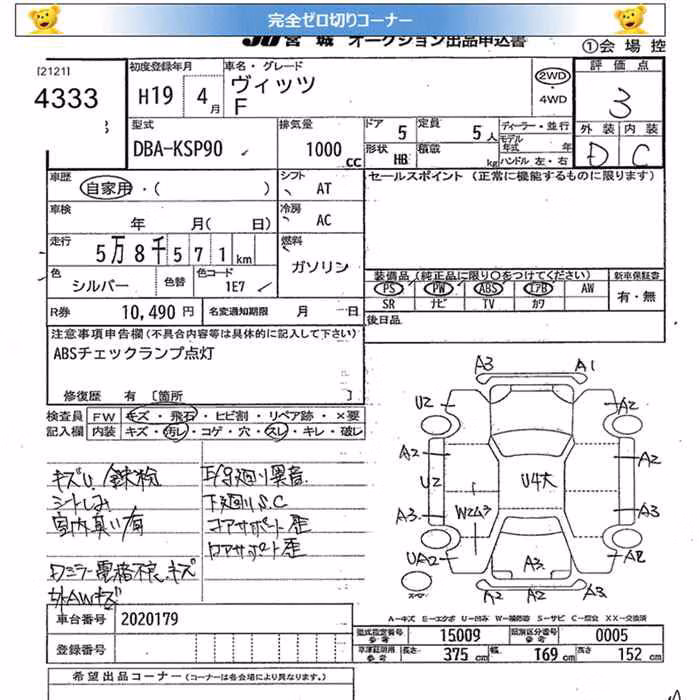 完全ゼロ切りコーナー
JU宮城 オークション出品申込書 ①会場控
[2121]
4333
初度登録年月
H19 4月
車名・グレード
ヴィッツ
F
2WD
・4WD
評価点
3
外装 内装
D C
型式
DBA-KSP90
排気量
1000 cc
ドア 5
定員 5人
形状 HB
積載 kg
ディーラー・並行
モデル年式 年
ハンドル 左・右
車歴
自家用・( )
シフト AT
車検
年 月( 日)
冷房 AC
走行
5万8千571km
燃料
ガソリン
色
シルバー
色替
色コード
1E7
R券 10,490円
名変通知期限 月 日
セールスポイント (正常に機能するものに限ります)
装備品(純正品に限り○をつけてください)
PS PW ABS エアB AW
SR ナビ TV カワ
新車保証書
有・無
後日品
注意事項申告欄(不具合内容等は具体的に記入して下さい)
ABSチェックランプ点灯
修復歴 有 [箇所 ]
検査員 FW キズ・飛石・ヒビ割・リペア跡・×要
記入欄 内装 キズ・汚レ・コゲ・穴・スレ・キレ・破レ
キズU 鉄粉
シートしみ
室内臭い有
ドミラー電格不良、キズ
外AWキズ
下廻りS.C
コアサポート歪
ロアサポート歪
A3 A1
U2 A2
A2 A2
U2 U4大
A3 W2A3 A3
UA2 A3
A2 A2 A3
車台番号 2020179
登録番号
A-キズ E-エクボ U-凹み W-補修跡 S-サビ C-腐食 XX-交換済
型式指定番号 参考 15009
類別区分番号 参考 0005
長さ 375cm 幅 169cm 高さ 152cm
希望出品コーナー (コーナーは各会場により異なります。)